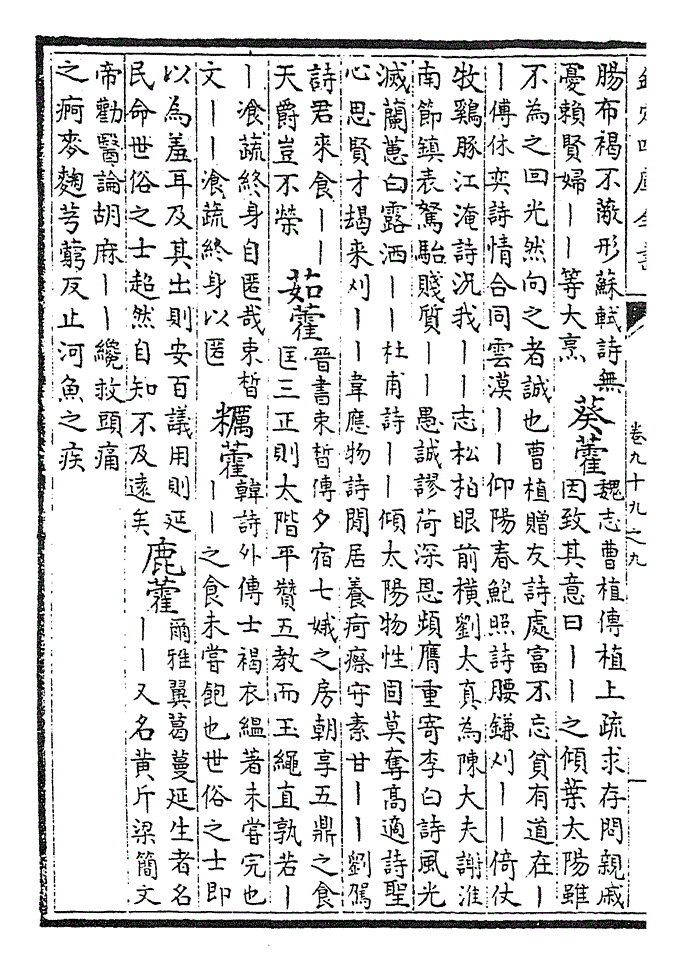 欽定四庫全書
卷九十九之九
腸布褐不蔽形蘇軾詩無
憂賴賢婦丨丨等大烹
葵藿
魏志曹植傳植上疏求存問親戚
因致其意曰丨丨之傾葉太陽雖
不為之回光然向之者誠也曹植贈友詩處富不忘貧有道在丨
丨傅休奕詩情合同雲漢丨丨仰陽春鮑照詩腰鎌刈丨丨倚仗
牧鷄豚江淹詩況我丨丨志松柏眼前橫劉太真為陳大夫謝淮
南節鎮表駑駘賤質丨丨愚誠謬荷深恩頻膺重寄李白詩風光
滅蘭蕙白露洒丨丨杜甫詩丨丨傾太陽物性固莫奪高適詩聖
心思賢才朅來刈丨丨韋應物詩閒居養疴瘵守素甘丨丨劉駕
詩君來食丨丨
天爵豈不榮
茹藿
晉書束晳傳夕宿七娥之房朝享五鼎之食
匡三正則太階平贊五教而玉繩直孰若丨
丨飡蔬終身自匿哉束晳
文丨丨飡蔬終身以匿
糲藿
韓詩外傳士褐衣縕著未嘗完也
丨丨之食未嘗飽也世俗之士即
以為羞耳及其出則安百議用則延
民命世俗之士超然自知不及遠矣
鹿藿
爾雅翼葛蔓延生者名
丨丨又名黃斤梁簡文
帝勸醫論胡麻丨丨纔救頭痛
之痾麥麴芎藭反止河魚之疾